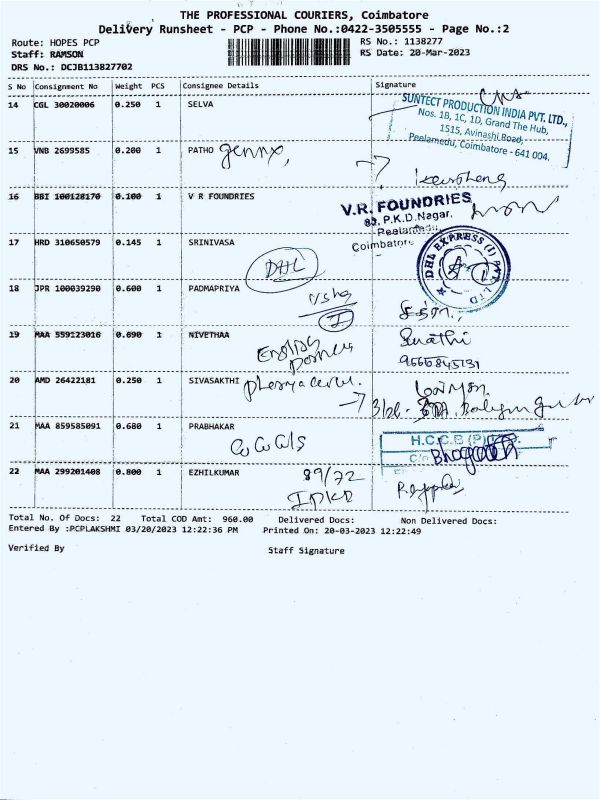 THE PROFESSIONAL COURIERS, Coimbatore
Delivery Runsheet - PCP - Phone No.:0422-3505555 - Page No.:2
Route: HOPES PCP
RS No.: 1138277
Staff: RAMSON
RS Date: 20-Mar-2023
DRS No.: DCJB113827702
S No Consignment No Weight PCS Consignee Details Signature
14 CGL 30020006 0.250 1 SELVA
SUNTECT PRODUCTION INDIA PVT. LTD.,
Nos. 1B, 1C, 1D, Grand The Hub,
1515, Avinashi Road,
Peelamedu, Coimbatore - 641 004.
15 VNB 2699585 0.200 1 PATHO
16 BBI 100128170 0.100 1 V R FOUNDRIES
V.R. FOUNDRIES
83, P.K.D.Nagar,
Peelamedu,
Coimbatore
17 HRD 310650579 0.145 1 SRINIVASA
DHL
DHL EXPRESS (I) PVT LTD
18 JPR 100039290 0.600 1 PADMAPRIYA
19 MAA 559123016 0.690 1 NIVETHAA
English
9666845131
20 AMD 26422181 0.250 1 SIVASAKTHI
21 MAA 859585091 0.680 1 PRABHAKAR
H.C.C.B (P)
C/o
22 MAA 299201408 0.800 1 EZHILKUMAR
89/72
Total No. Of Docs: 22 Total COD Amt: 960.00 Delivered Docs: Non Delivered Docs:
Entered By :PCPLAKSHMI 03/20/2023 12:22:36 PM Printed On: 20-03-2023 12:22:49
Verified By Staff Signature